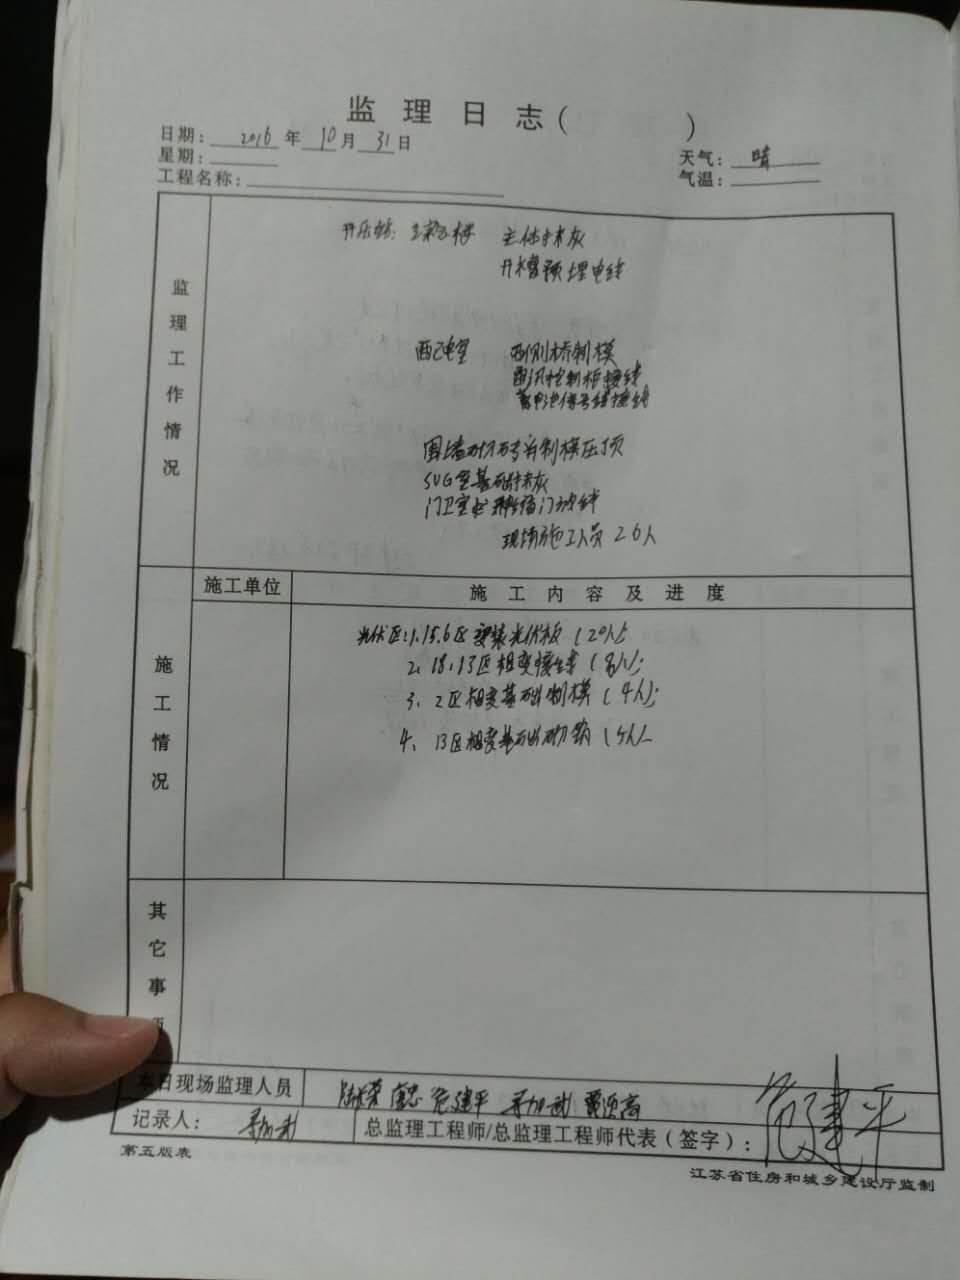 监理日志( )
日期: 2016 年 10 月 31 日
星期:
天气: 晴
工程名称:
气温:
监理工作情况
升压站: 综合楼 主体抹灰
升水管预埋电线
西配电室 西侧桥制模
通讯控制柜接线
蓄电池信号线接线
围墙砌砖 制模压顶
SVG室基础抹灰
门卫室 门 线
现场施工人员 26人
施工单位 施工内容及进度
施工情况
光伏区:1、15、6区安装光伏板(20人);
2、18、13区相变接线(8人);
3、2区相变基础制模(4人);
4、13区相变基础砌筑(5人)
其它事项
本日现场监理人员 范建平
记录人:
总监理工程师/总监理工程师代表(签字): 范建平
第五版表
江苏省住房和城乡建设厅监制